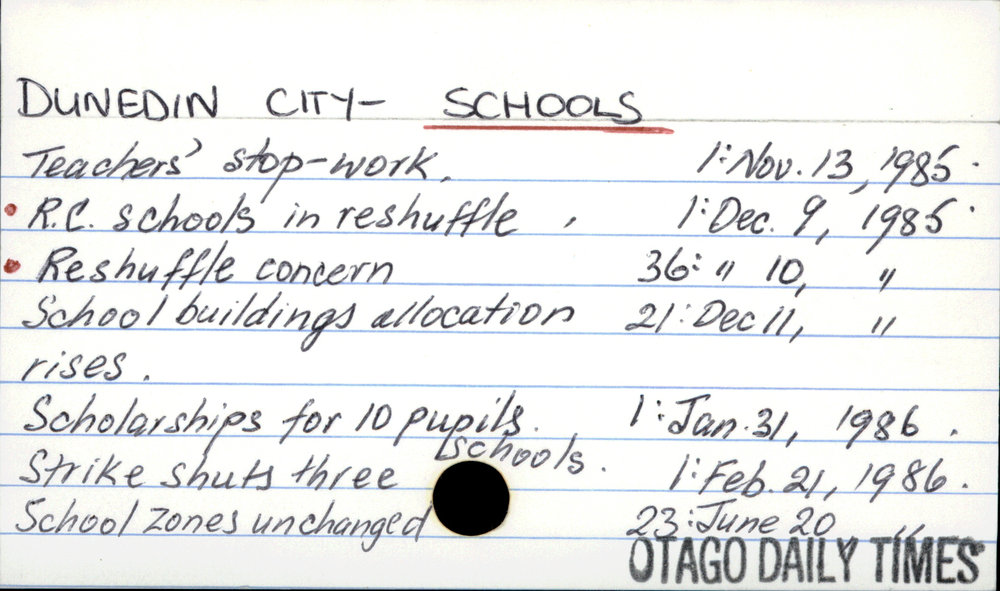 DUNEDIN CITY- SCHOOLS
Teachers' stop-work. 1: Nov. 13, 1985.
• R.C. schools in reshuffle , 1: Dec. 9, 1985.
• Reshuffle concern 36: " 10, "
School buildings allocation 21: Dec 11, "
rises.
Scholarships for 10 pupils. 1: Jan. 31, 1986.
Strike shuts three schools. 1: Feb. 21, 1986.
School zones unchanged 23: June 20 "
OTAGO DAILY TIMES